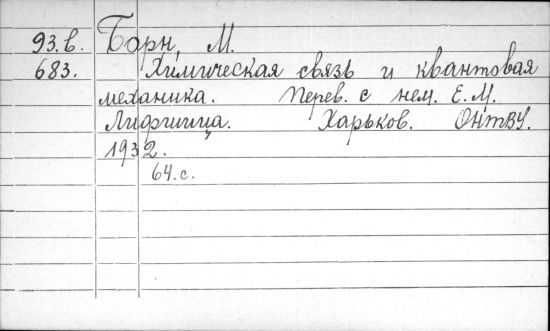 93.в. Борн, М.
683. Химическая связь и квантовая
механика. Перев. с нем. Е.М.
Лифшица. Харьков. ОНТВУ.
1932.
64.с.